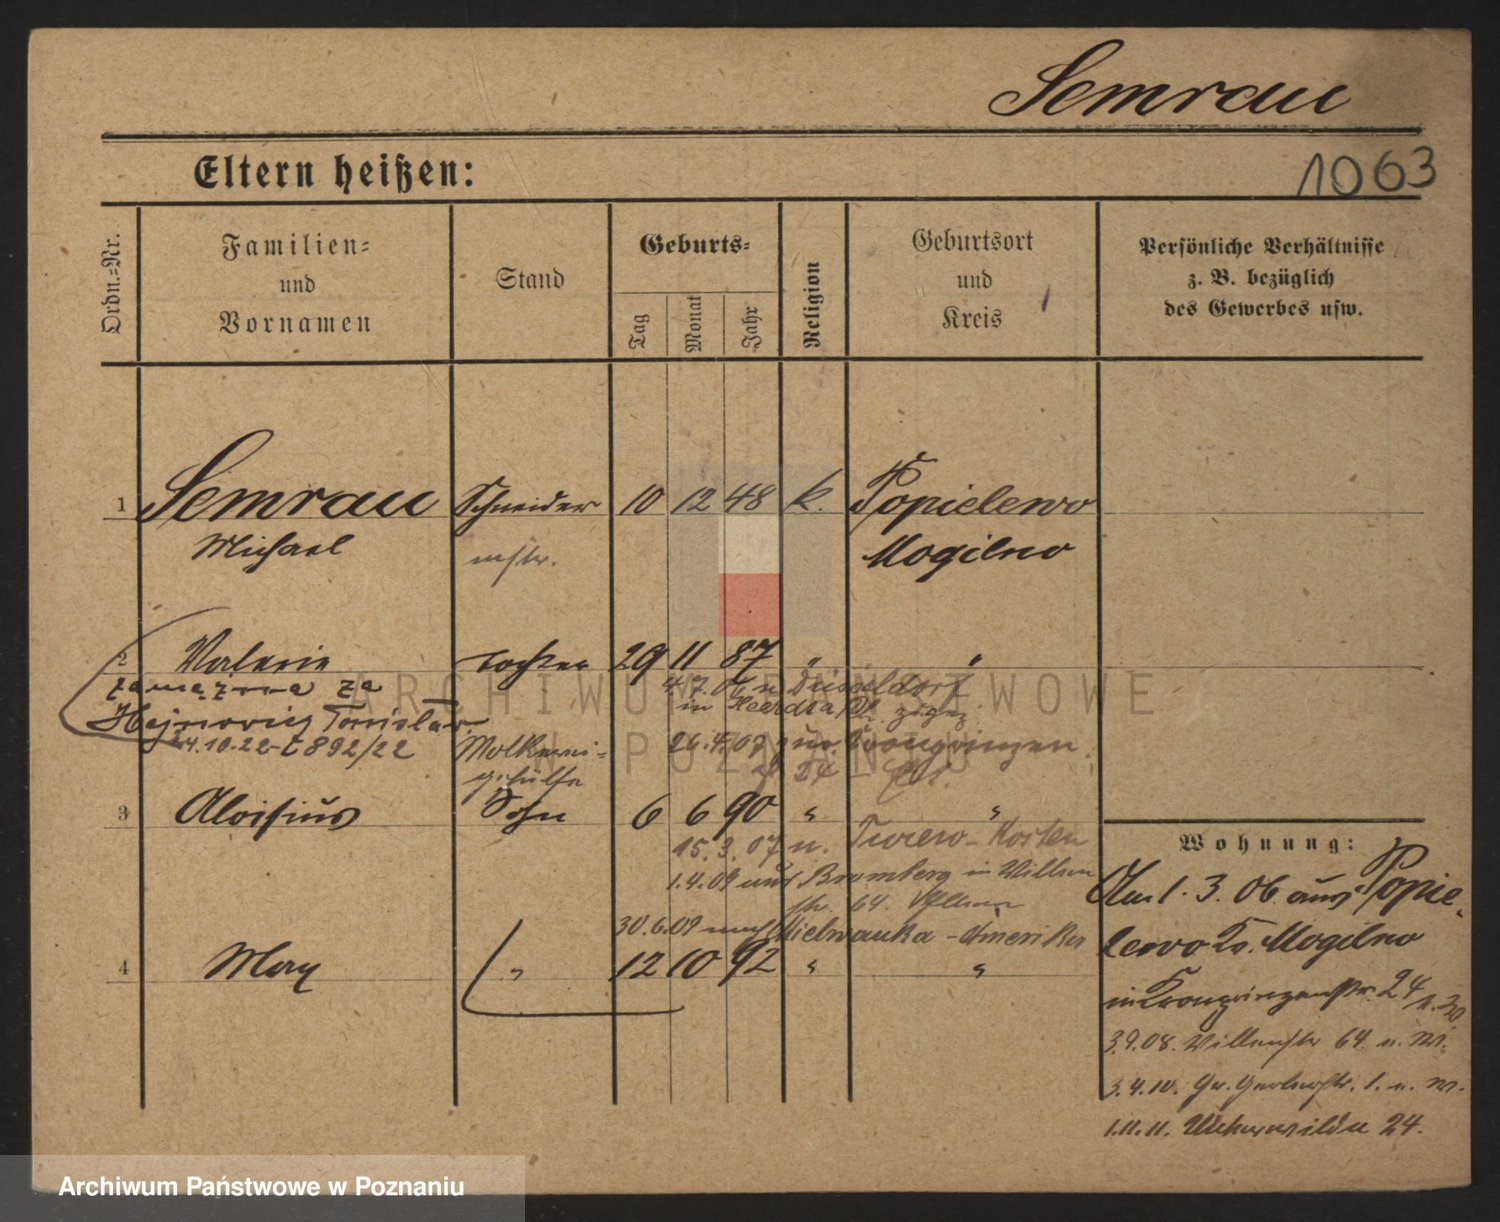 Semrau
Eltern heißen:
1063
Ordn.=Nr.
Familien=
und
Vornamen
Stand
Geburts=
Tag
Monat
Jahr
Religion
Geburtsort
und
Kreis
Persönliche Verhältnisse
z. B. bezüglich
des Gewerbes usw.
1 Semrau Schneider 10 12 48 k. Popielewo
Michael mstr. Mogilno
2 Valerie Tochter 29 11 87 " "
zamężna za 4.7.06 n. Düsseldorf
Hejnowicz in Heerdt
24.10.22 - t 892/22 Molkerei= 26.4.09 zur. Kronprinzen
gehülfe 24
3 Aloisius Sohn 6 6 90 " "
15.3.07 n. Turew - Kosten
1.4.09 aus Bromberg in Willen
str. 64
30.6.09 nach Mielwauka - Amerika
4 Max " 12 10 92 " "
Wohnung:
Am 1.3.06 aus Popie-
lewo Kr. Mogilno
in Kronprinzenstr. 24
3.9.08. Willenstr 64
3.4.10. Gr. 1.
1.11.11. 24.
ARCHIWUM PAŃSTWOWE
W POZNANIU
Archiwum Państwowe w Poznaniu